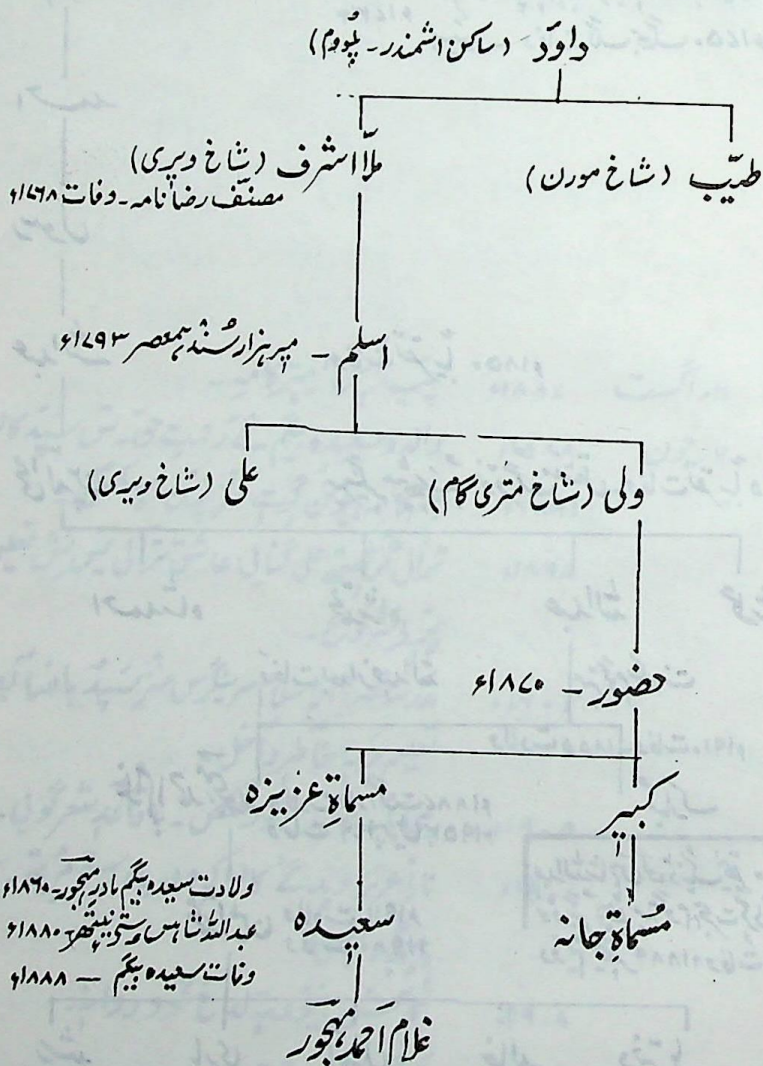 داؤد (ساکن اشمندر - پُلووم)
طیّب (شاخ مورن)
ملّا اشرف (شاخ ویری)
مصنّف رضا نامہ - وفات ۱۷۶۸ء
اسلم - میر ہزار سُند ہمعصر ۱۷۹۳ء
ولی (شاخ متری گام)
علی (شاخ ویری)
حضور - ۱۸۷۰ء
کبیر
مسماۃِ عزیزہ
مُسماۃِ جانہ
سعیدہ
ولادت سعیدہ بیگم مادرِ مہجور - ۱۸۶۰ء
عبداللہ شاہس ۱۸۸۰ء
وفات سعیدہ بیگم - ۱۸۸۸ء
غلام احمد مہجور